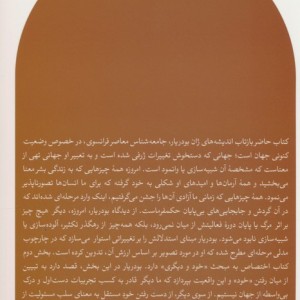 کتاب حاضر بازتاب اندیشه‌های ژان بودریار، جامعه‌شناس معاصر فرانسوی، در خصوص وضعیت
کنونی جهان است؛ جهانی که دستخوش تغییرات ژرفی شده است و به تعبیر او جهانی تهی از
معناست که مشخصهٔ آن شبیه‌سازی یا وانمود است. امروزه همهٔ چیزهایی که به زندگی بشر معنا
می‌بخشید و همهٔ آرمان‌ها و امیدهای او شکلی به خود گرفته که برای ما انسان‌ها تصورناپذیر
می‌نمود. همهٔ چیزهایی که زمانی ما آزادی آن‌ها را جشن می‌گرفتیم، اینک وارد مرحله‌ای شده‌اند که
در آن گردش و جابجایی‌های بی‌پایان حکمفرماست. از دیدگاه بودریار، امروزه، دیگر هیچ چیز
بر اثر مرگ یا پایان دورهٔ فعالیتش از میان نمی‌رود، بلکه همه‌چیز از رهگذر تکثیر، آلوده‌سازی یا
شبیه‌سازی نابود می‌شود. بودریار مبنای استدلالاتش را بر تغییراتی استوار می‌سازد که در چارچوب
مدلی مرحله‌ای مطرح شده که او در مورد تصویر بر اساس ارزش آن، تدوین کرده است. بخش دوم
کتاب اختصاص به مبحث «خود و دیگری» دارد. بودریار در این بخش، قصد دارد به تبیین
از میان رفتن «خود» و این واقعیت بپردازد که ما دیگر قادر به کسب تجربیات دست‌اول و درک
بی‌واسطه از جهان نیستیم. از سوی دیگر، از دست رفتن خود مستقل به معنای سلب مسئولیت از